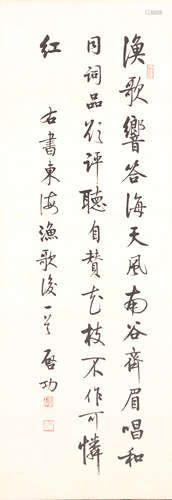 渔歌响答海天风南谷齐眉唱和
同词品欲评听自赞花枝不作可怜
红
右书东海渔歌后一首 启功